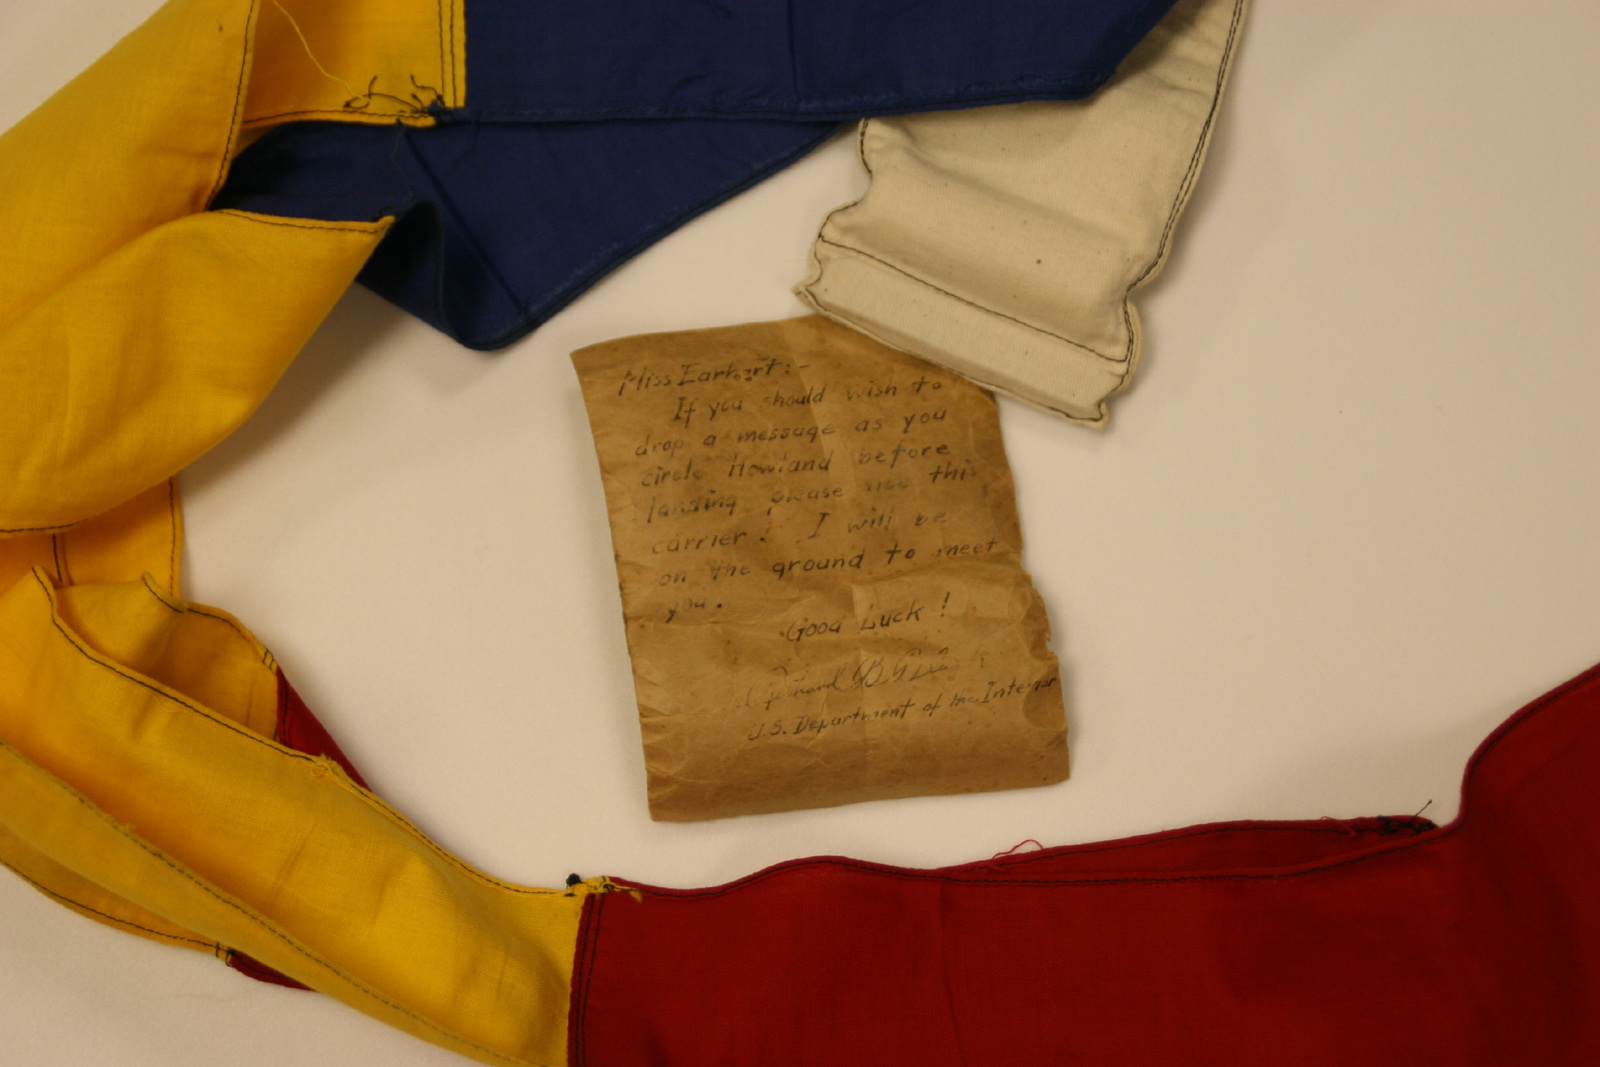 Miss Earhart:-
If you should wish to
drop a message as you
circle Howland before
landing please use this
carrier! I will be
on the ground to meet
you.
Good Luck!
Richard B. Black
U.S. Department of the Interior